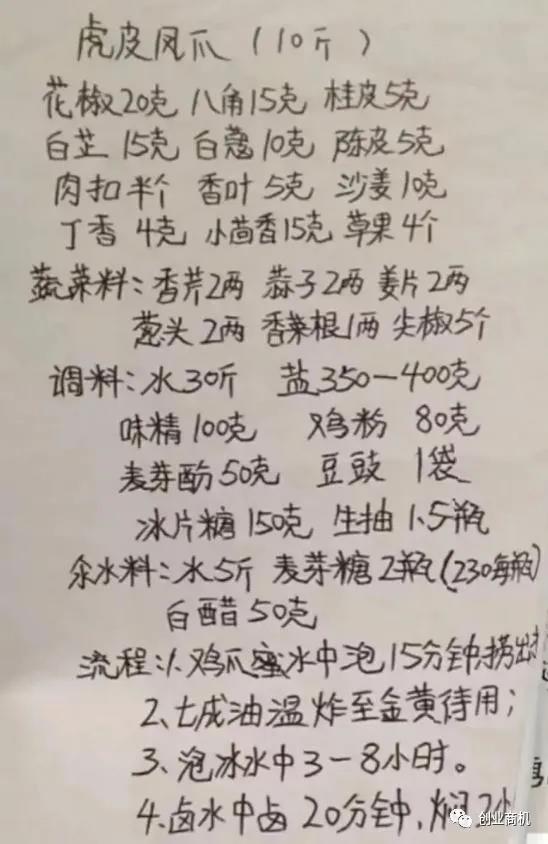 虎皮凤爪（10斤）
花椒20克 八角15克 桂皮5克
白芷 15克 白蔻10克 陈皮5克
肉扣半个 香叶5克 沙姜10克
丁香 4克 小茴香15克 草果4个
蔬菜料:香芹2两 蒜子2两 姜片2两
葱头2两 香菜根1两 尖椒5个
调料:水30斤 盐350—400克
味精100克 鸡粉 80克
麦芽酚50克 豆豉 1袋
冰片糖150克 生抽1.5瓶
氽水料:水5斤 麦芽糖2瓶(230每瓶)
白醋50克
流程:1.鸡爪蜜水中泡15分钟,捞出
2、七成油温炸至金黄待用;
3、泡冰水中3—8小时。
4.卤水中卤20分钟,焖2小
创业商机